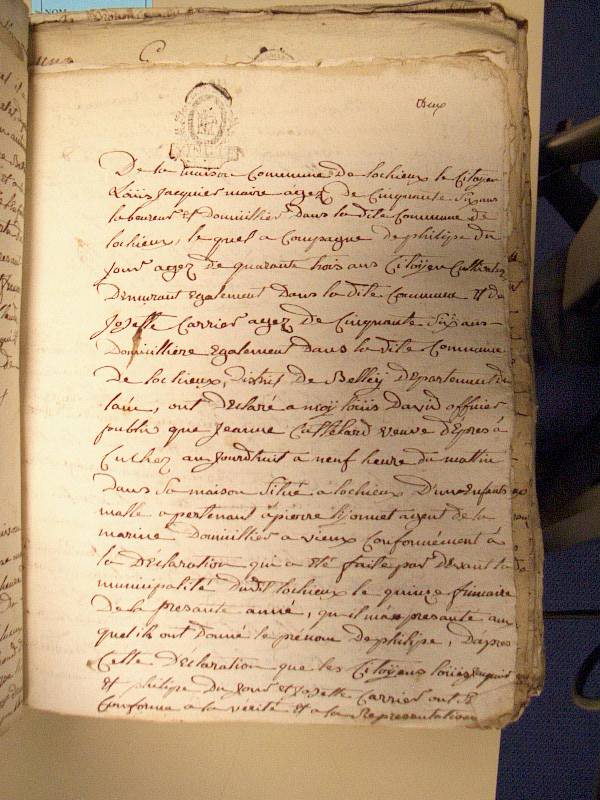 NOM
deux
De la maison Commune De lochieux le Citoyen
Loüis Jacquier maire agez de Cinquante Six ans
laboureur et domicilliés dans la dite Commune de
lochieux, le quel a Compagne de philipe Du
jour agez de quarante trois ans Citoyen Cultivateur
Demeurant Egalement dans la dite Commune et de
Josette Carrier agez de Cinquante Six ans
Domicilliere egalement dans la dite Commune
De lochieux, district De Belley Departement de
lain, ont Declaré a moy loüis David officier
publi que Jeanne Cuttelard veuve
a Cuchez aujourdhuit a neuf heure du mattin
dans Sa maison Situé a lochieux D'un Enfants
malle apertenant a pierre agent de la
marine Domicilliés a vieux Conformément à
la Déclaration qui a été faite par devant la
municipalité dudit lochieux le quinze frimaire
de la presante anné, qu il man presante au
quel ils ont donné le prénom de philipe, Dapres
Cette Déclaration que les Citoyens loüis Jaquier
et philipe Du jour et Josette Carrier ont
Conforme a la vérité et a la Representation